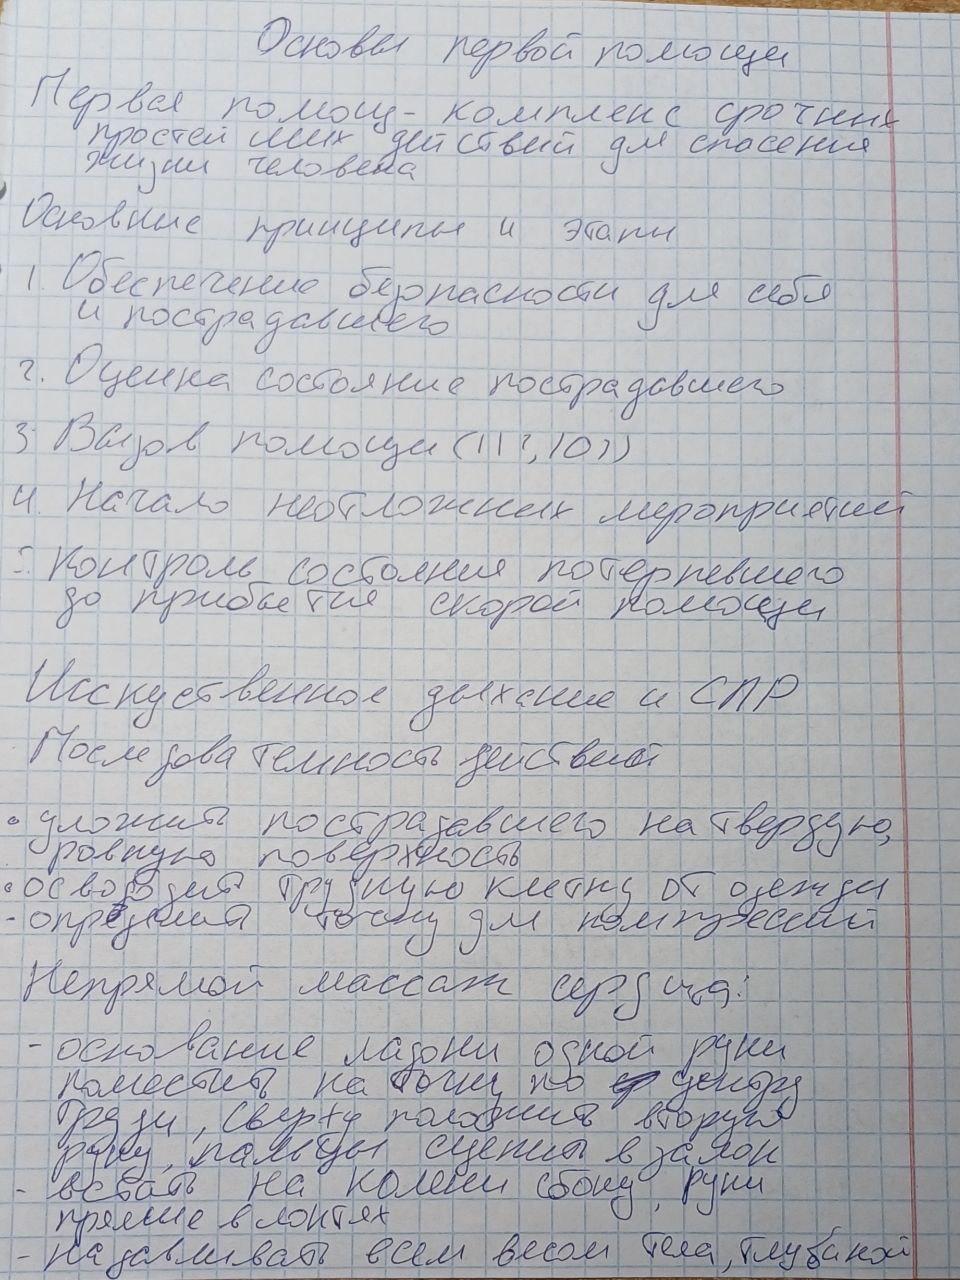 Основы первой помощи
Первая помощ - комплекс срочних
простейших действий для спасения
жизни человека
Основние принципы и этапи
1. Обеспечение безопасности для себя
и пострадавшего
2. Оценка состояние пострадавшего
3. Вызов помощи (112, 103)
4. Начало неотложних мероприятий
5. Контроль состояния потерпевшего
до прибытия скорой помощи
Исскуственное дыхание и СЛР
Последовательность действий
• уложить пострадавшего на твердую,
ровную поверхность
• освободить грудную клетку от одежди
- определить точку для компрессий
Непрямой массаж сердца:
- основание ладони одной руки
поместить на точку по центру
груди, сверху положить вторую
руку, пальцы сцепить в замок
- встать на колени сбоку, руки
прямие в локтях
- надавливать всем весом тела, глубиной